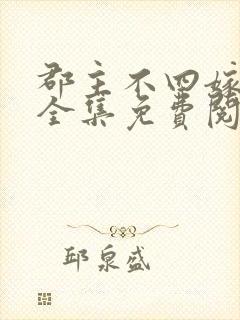 郡主不四嫁
全集免費閱
邱泉盛